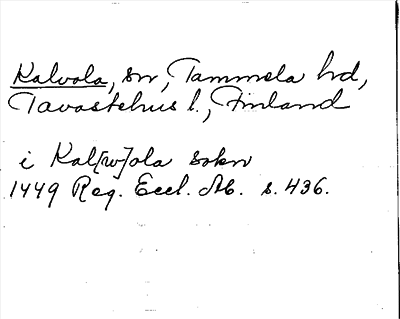 Kalvola, sn, Tammela hd,
Tavastehus l., Finland
i Kal[w]ola sokn
1449 Reg. Eccl. Ab. s. 436.